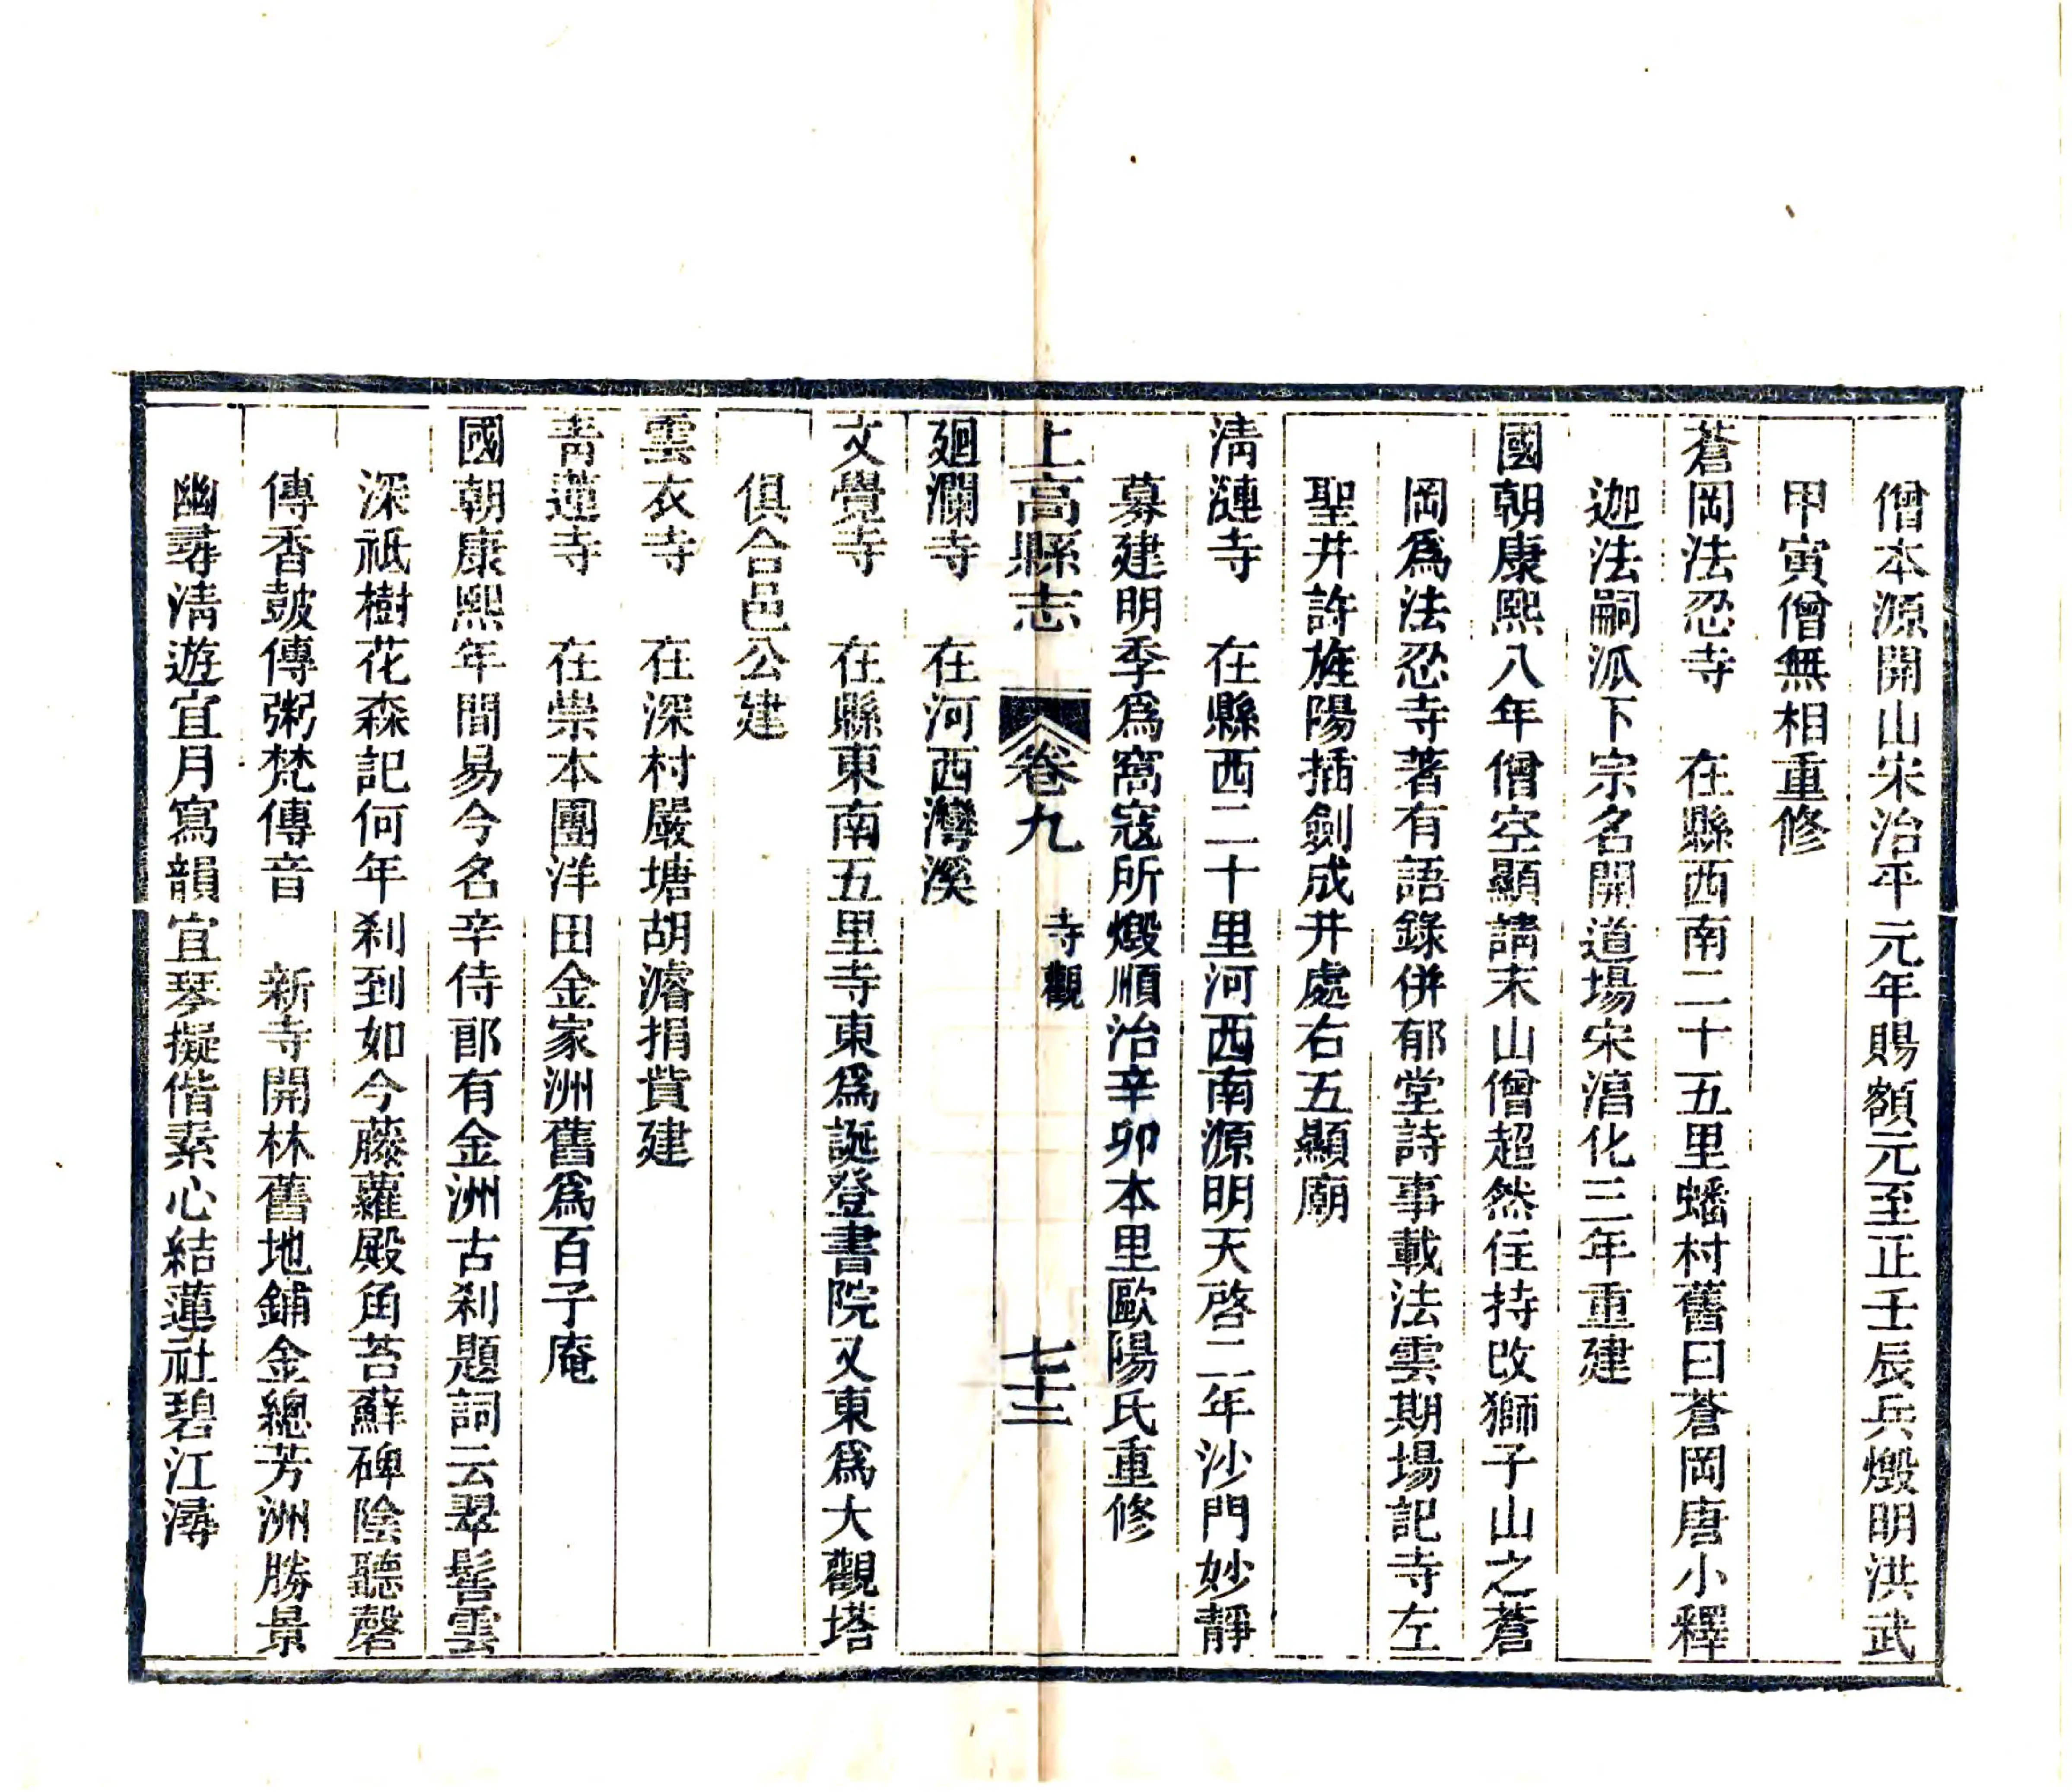 僧本源開山宋治平元年賜額元至正壬辰兵燬明洪武
甲寅僧無相重修
蒼岡法忍寺　在縣西南二十五里蟠村舊曰蒼岡唐小釋
迦法嗣派下宗名開道場宋淳化三年重建
國朝康熙八年僧空顯請末山僧超然住持改獅子山之蒼
岡爲法忍寺著有語錄併郁堂詩事載法雲期場記寺左
聖井許旌陽插劍成井處右五顯廟
清漣寺　在縣西二十里河西南源明天啓二年沙門妙靜
募建明季爲窩寇所燬順治辛卯本里歐陽氏重修
上高縣志　卷九　寺觀　七十三
廻瀾寺　在河西灣溪
文覺寺　在縣東南五里寺東爲誕登書院又東爲大觀塔
俱合邑公建
雲衣寺　在深村嚴塘胡濬捐貲建
青蓮寺　在崇本團洋田金家洲舊爲百子庵
國朝康熙年間易今名辛侍郎有金洲古刹題詞云翠髻雲
深祇樹花森記何年刹到如今藤蘿殿角苔蘚碑陰聽磬
傳香鼓傳粥梵傳音　新寺開林舊地鋪金總芳洲勝景
幽尋清遊宜月寫韻宜琴擬偕素心結蓮社碧江潯